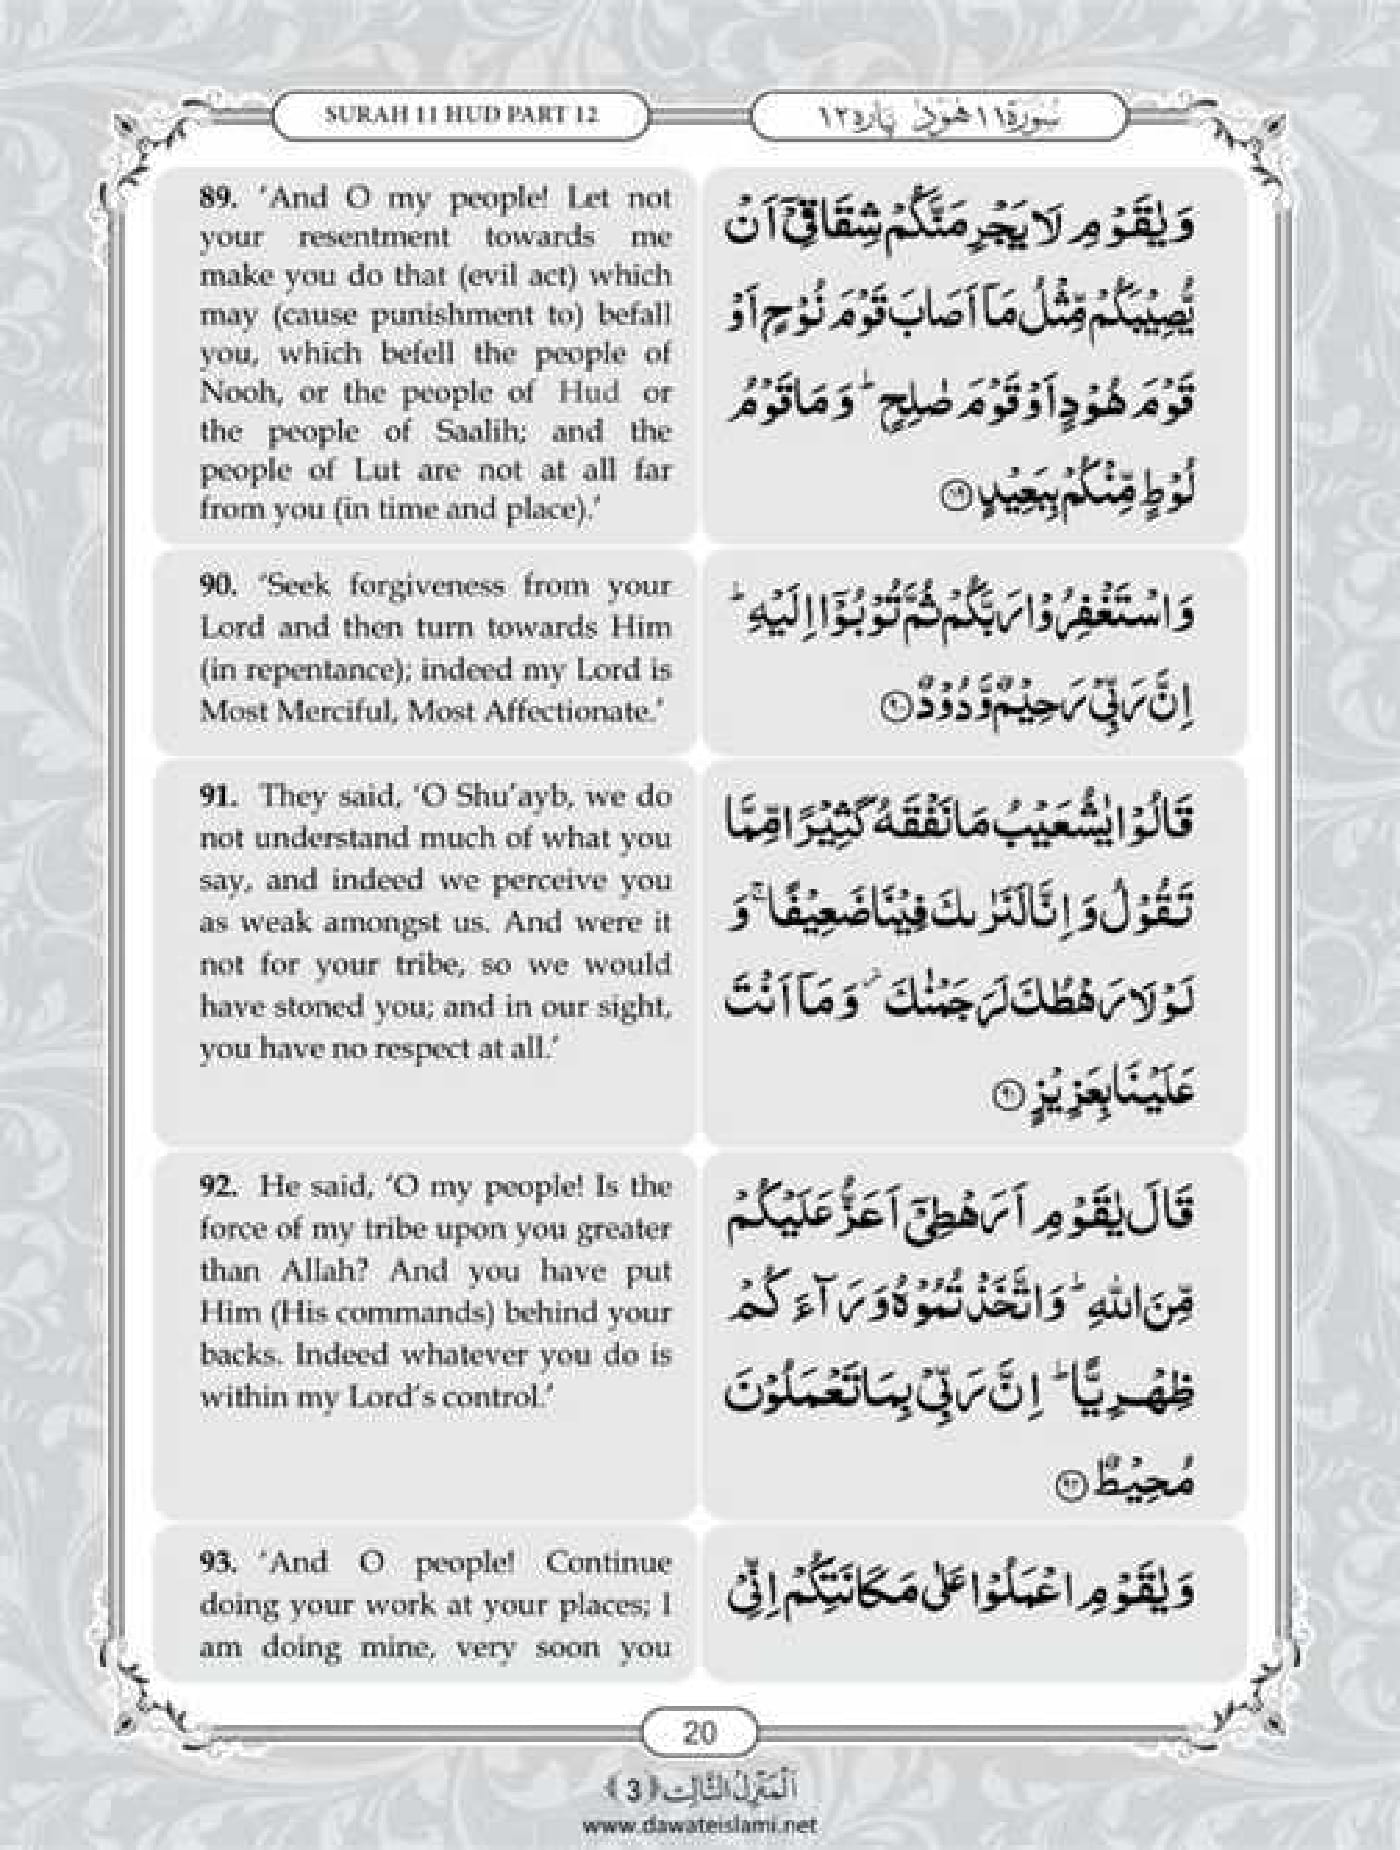 SURAH 11 HUD PART 12
سُورَة ١١ هُوْد پارہ ١٢
89. ‘And O my people! Let not
your resentment towards me
make you do that (evil act) which
may (cause punishment to) befall
you, which befell the people of
Nooh, or the people of Hud or
the people of Saalih; and the
people of Lut are not at all far
from you (in time and place).’
وَيٰقَوْمِ لَا يَجْرِمَنَّكُمْ شِقَاقِيْۤ اَنْ
يُّصِيْبَكُمْ مِّثْلُ مَاۤ اَصَابَ قَوْمَ نُوْحٍ اَوْ
قَوْمَ هُوْدٍ اَوْ قَوْمَ صٰلِحٍ ؕ وَ مَا قَوْمُ
لُوْطٍ مِّنْكُمْ بِبَعِيْدٍ ﴿۸۹﴾
90. ‘Seek forgiveness from your
Lord and then turn towards Him
(in repentance); indeed my Lord is
Most Merciful, Most Affectionate.’
وَاسْتَغْفِرُوْا رَبَّكُمْ ثُمَّ تُوْبُوْۤا اِلَيْهِ ؕ
اِنَّ رَبِّيْ رَحِيْمٌ وَّدُوْدٌ ﴿۹۰﴾
91. They said, ‘O Shu’ayb, we do
not understand much of what you
say, and indeed we perceive you
as weak amongst us. And were it
not for your tribe, so we would
have stoned you; and in our sight,
you have no respect at all.’
قَالُوْا يٰشُعَيْبُ مَا نَفْقَهُ كَثِيْرًا مِّمَّا
تَقُوْلُ وَ اِنَّا لَنَرٰىكَ فِيْنَا ضَعِيْفًا ۚ وَ
لَوْ لَا رَهْطُكَ لَرَجَمْنٰكَ ۫ وَ مَاۤ اَنْتَ
عَلَيْنَا بِعَزِيْزٍ ﴿۹۱﴾
92. He said, ‘O my people! Is the
force of my tribe upon you greater
than Allah? And you have put
Him (His commands) behind your
backs. Indeed whatever you do is
within my Lord’s control.’
قَالَ يٰقَوْمِ اَرَهْطِيْۤ اَعَزُّ عَلَيْكُمْ
مِّنَ اللّٰهِ ؕ وَاتَّخَذْتُمُوْهُ وَرَآءَكُمْ
ظِهْرِيًّا ؕ اِنَّ رَبِّيْ بِمَا تَعْمَلُوْنَ
مُحِيْطٌ ﴿۹۲﴾
93. ‘And O people! Continue
doing your work at your places; I
am doing mine, very soon you
وَيٰقَوْمِ اعْمَلُوْا عَلٰى مَكَانَتِكُمْ اِنِّيْ
20
اَلْمَنْزِلُ الثَّالِث ﴿3﴾
www.dawateislami.net